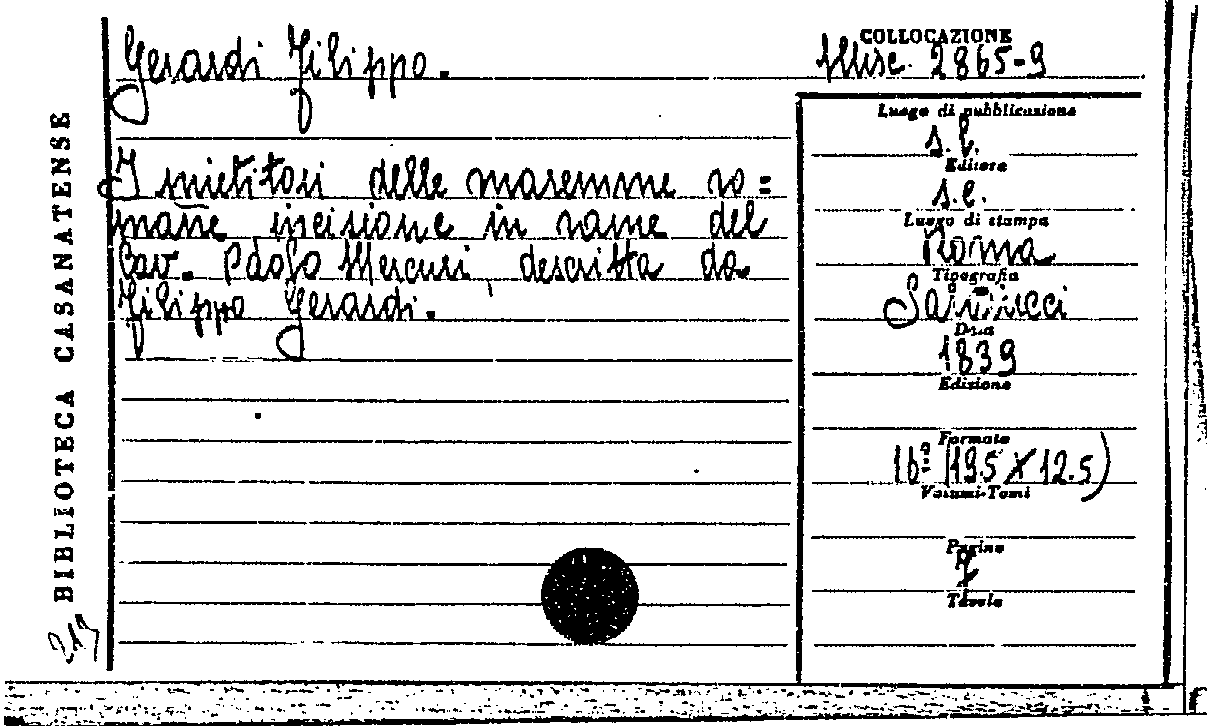 Gerardi Filippo.
I mietitori delle maremme ro=
mane incisione in rame del
Cav. Paolo Mercuri descritta da
Filippo Gerardi.
BIBLIOTECA CASANATENSE
219
COLLOCAZIONE
Misc. 2865-9
Luogo di pubblicazione
s.l.
Editore
s.e.
Luogo di stampa
Roma
Tipografia
Salviucci
Data
1839
Edizione
Formato
16º (19.5 X 12.5)
Volumi-Tomi
Pagine
7
Tavole